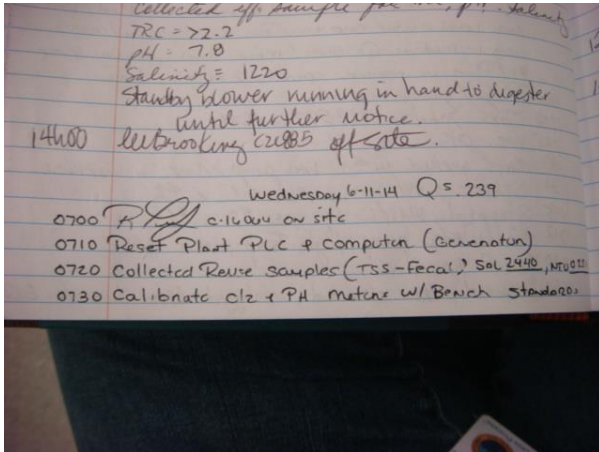 Collected eff sample for
TRC = >2.2
pH = 7.8
Salinity = 1220
Standby blower running in hand to digester
until further notice.
14h00 offsite.
Wednesday 6-11-14 Qs. 239
0700 C-16044 on site
0710 Reset Plant PLC & computer (Generator)
0720 Collected Reuse samples (TSS-Fecal) Sal 2440, NTU
0730 Calibrate cl2 & PH meters w/ Bench standards